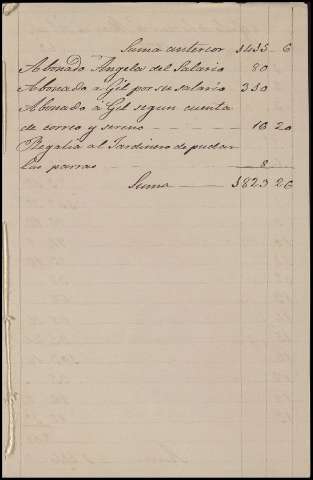 Suma anterior 1435 6
Abonado Angela del Salario 80
Abonado a Gil por su salario 350
Abonado a Gil segun cuenta
de correo y sereno 16 20
Regalia al Jardinero de podar
las parras 8
Suma